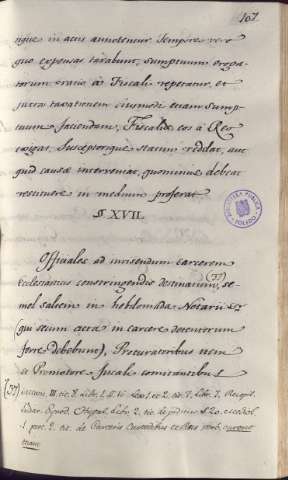 107.
rique in actis annotentur. Semper vero
quo expensas taxabunt, sumptuum eroga-
torum ratio à Fiscali repetatur, et
juxta taxationem ejusmodi etiam sump-
tuum faciendam, Fiscalis eos à Reo
exigat, susceptorique statim reddat, aut
quid causæ interveniat, quominus debeat
restituere in medium proferat.
§ XVII.
Officiales ad visendum carcerem
Ecclesiasticis constringendis destinatum, (77) se-
mel saltem in hebdomada Notarii
(qui secum acta in carcere detentorum
ferre debebunt), Procuratoribus item
ac Promotore fiscali comitantibus
(77)
lib. 1. tit. 2. lib. 7. Recopil.
Synod. Lib. 2. tit. de judiciis §. 20.
1. part. 2. tit. de Carceris Custodibus verb.
BIBLIOTECA PUBLICA
TOLEDO